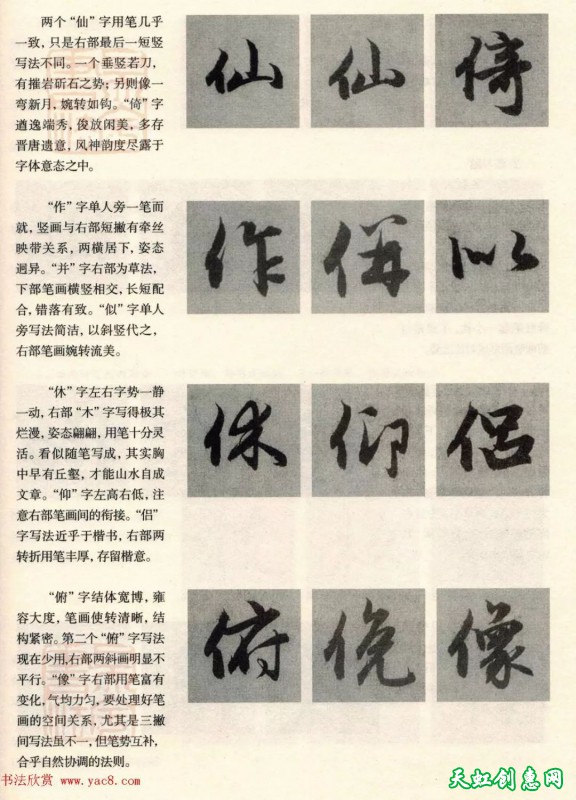 两个“仙”字用笔几乎
一致，只是右部最后一短竖
写法不同。一个垂竖若刀，
有摧岩斫石之势；另则像一
弯新月，婉转如钩。“倚”字
遒逸端秀，俊放闲美，多存
晋唐遗意，风神韵度尽露于
字体意态之中。
仙 仙 倚
“作”字单人旁一笔而
就，竖画与右部短撇有牵丝
映带关系，两横居下，姿态
迥异。“并”字右部为草法，
下部笔画横竖相交，长短配
合，错落有致。“似”字单人
旁写法简洁，以斜竖代之，
右部笔画婉转流美。
作 併 似
“休”字左右字势一静
一动，右部“木”字写得极其
烂漫，姿态翩翩，用笔十分灵
活。看似随笔写成，其实胸
中早有丘壑，才能山水自成
文章。“仰”字左高右低，注
意右部笔画间的衔接。“侣”
字写法近乎于楷书，右部两
转折用笔丰厚，存留楷意。
休 仰 侣
“俯”字结体宽博，雍
容大度，笔画使转清晰，结
构紧密。第二个“俯”字写法
现在少用，右部两斜画明显不
平行。“像”字右部用笔富有
变化，气均力匀，要处理好笔
画的空间关系，尤其是三撇
间写法虽不一，但笔势互补，
合乎自然协调的法则。
俯 俛 像
书法欣赏 www.yac8.com
天虹创意网